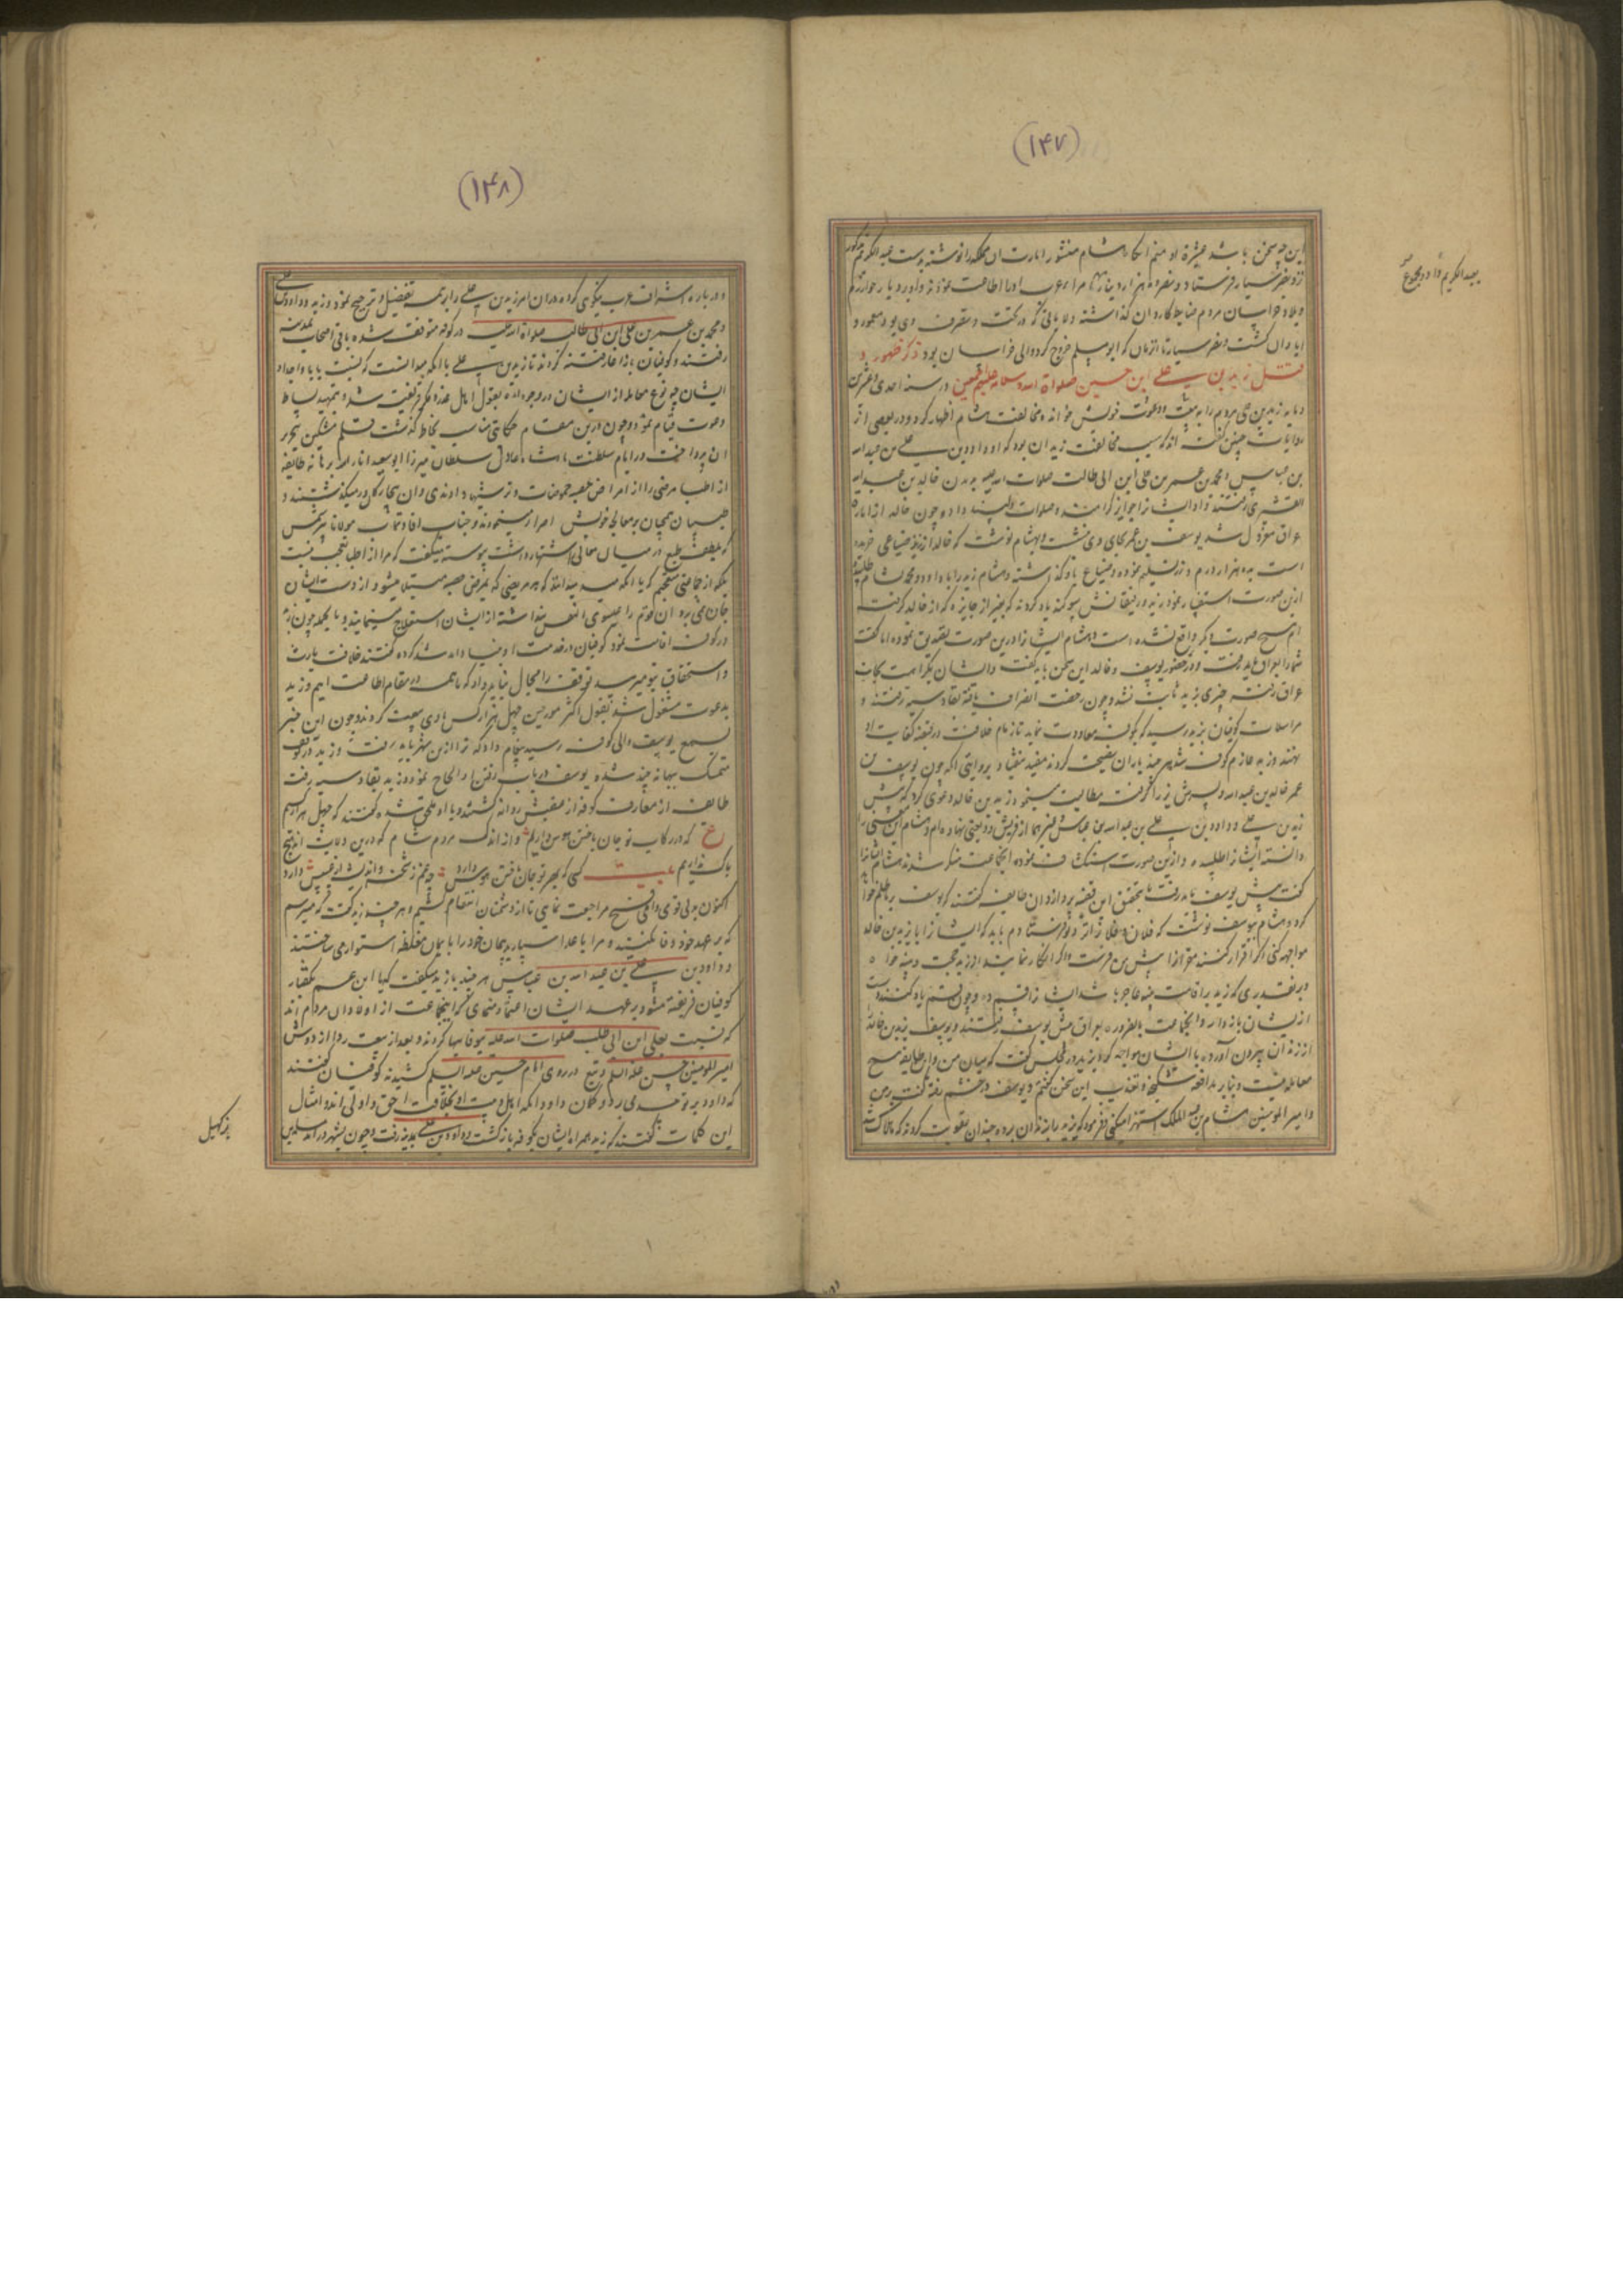 (۱۴۷)
این چه سخن باشد هشام منشور امارت آن مملکه را نوشته بدست عبدالکریم
نزد نصر سیار فرستاد و نصر ده هزار دینار اطاعت نمودند
و بلاد خراسان مردم ضابط کاردان گذاشته ولایاتی که در تحت و تصرف وی بود معمور و
آبادان گشت و نصر سیار تا آن زمان که ابومسلم خروج کرد والی خراسان بود ذکر ظهور و
قتل زید بن علی ابن حسین صلواة الله و سلامه علیهم اجمعین در سنه احدی و عشرین
و مایه زید بن علی مردم را به بیعت و دعوت خویش خوانده مخالفت هشام اظهار کرد و در بعضی از
روایات چنین گفته اند که سبب مخالفت زید آن بود که او و داود بن علی بن عبدالله
بن عباس و محمد بن عمر بن علی ابن ابی طالب صلوات الله علیه نزد خالد بن عبدالله
القشری رفتند و او ایشان را جوایز گرامند و صلوات داد و چون خالد از امارت
عراق معزول شد یوسف بن عمر بجای وی نشست و بهشام نوشت که خالد از زید ضیاعی خریده
است بده هزار درم و زر تسلیم نموده و ضیاع باز گذاشته و هشام زید را با داود و محمد بشام طلبیده
ازین صورت استفسار نمود زید و رفیقانش سوگند یاد کردند که بغیر از جایزه که از خالد گرفته
ایم هیچ صورت دیگر واقع نشده است و هشام ایشان را درین صورت تصدیق نموده اما گفت
شما را بعراق باید رفت و در حضور یوسف و خالد این سخن باید گفت و ایشان بکراهت بجانب
عراق رفتند چیزی بر زید ثابت نشد و چون رخصت انصراف یافته بقادسیه رفتند و
مراسلات کوفیان بزید رسید که بکوفه معاودت نماید تا زمام خلافت در قبضه کفایت او
نهند و زید عازم کوفه شد هر چند یاران نصیحت کردند مفید نیفتاد و بروایتی آنکه چون یوسف بن
عمر خالد بن عبدالله و پسرش یزید را گرفت مطالبت مینمود یزید بن خالد دعوی کرد که پیش
زید بن علی و داود بن علی بن عبدالله بن عباس و غیرهما از قریش ودیعتی نهاده ام و هشام این معنی را
دانسته ایشان را طلبیده و ازین صورت استکشاف نموده آن جماعت منکر شدند هشام ایشان را
گفت پیش یوسف باید رفت تا بتحقیق این قضیه پردازد آن طایفه گفتند که یوسف بر ما ظلم خواهد
کرد هشام بیوسف نوشت که فلان و فلان را نزد تو فرستادم باید که ایشان را با یزید بن خالد
مواجهه کنی اگر اقرار کنند مقر را پیش من فرست و اگر انکار نمایند از یزید حجت و بینه خواه
و بر تقدیری که یزید بر اقامت بینه عاجز باشد ایشان را قسم ده و چون قسم یاد کنند دست
از ایشان باز دار و آن جماعت بالضروره بعراق پیش یوسف رفتند و یوسف یزید بن خالد
از زندان بیرون آورده با ایشان مواجهه کرد یزید در مجلس گفت که میان من و این طایفه هیچ
معامله نیست و بنا بر مدافعه شکنجه و تعذیب این سخن گفتم و یوسف در خشم رفته گفت بر من
و امیرالمومنین هشام بن عبدالملک استهزا میکنی و فرمود که یزید را بزندان برده چندان عقوبت کردند که هلاک شد
بعبدالکریم داد و مجموع
(۱۴۸)
و درباره اشراف عرب نیکوی کرده در آن امر زید بن علی را بر همه تفضیل و ترجیح نمود و زید و داود بن علی
و محمد بن عمر بن علی ابن ابی طالب صلوات الله علیه در کوفه متوقف شده باقی اصحاب بمدینه
رفتند و کوفیان باز آغاز فتنه کردند تا زید بن علی با آنکه میدانست که نسبت بآبا و اجداد
ایشان چه نوع معامله از ایشان در وجود آمده بقول اهل غدر و مکر فریفته شد و بتمهید بساط
دعوت قیام نمود و چون درین مقام حکایتی مناسب بخاطر گذشت قلم مشکین بتحریر
آن پرداخت در ایام سلطنت پادشاه عادل سلطان میرزا ابوسعید انار الله برهانه طایفه
از اطبا مرضی را از امراض حصبه حموضات و ترشیها دادندی و آن بیچارگان درمیگذشتند و
طبیبان همچنان بر معالجه خویش اصرار مینمودند و جناب افادت مآب مولانا شمس
که بلطف طبع در میان اهالی اشتهار داشت پیوسته میگفت که مرا از اطبا تعجب نیست
بلکه از جماعتی متعجبم که با آنکه میدانند که هر مریضی که بمرض حصبه مبتلا میشود از دست ایشان
جان نمی برد آن قوم را عیسوی النفس پنداشته از ایشان استعلاج مینمایند و بالجمله چون زید
در کوفه اقامت نمود کوفیان در خدمت او فساد کرده گفتند خلافت بارث
و استحقاق بتو میرسد توقف را مجال نباید داد که ما همه در مقام اطاعت ایم و زید
بدعوت مشغول شد بقول اکثر مورخین چهل هزار کس با وی بیعت کردند و چون این خبر
بسمع یوسف والی کوفه رسید پیغام داد که ترا ازین شهر باید رفت و زید در توقف
متمسک ببهانه چند شده یوسف در باب رفتن او الحاح نمود و زید بقادسیه رفت
طایفه از معارف کوفه از عقبش روانه گشتند و با او ملحق شده گفتند که چهل هزار کسیم
ع که در رکاب تو جان باختن هوس داریم و از اندک مردم شام که درین ولایت اند هیچ
باک نداریم بیت کسی که بهر تو جان باختن هوس دارد چه غم ز شحنه و اندیشه از عسس دارد
اکنون بدلی قوی و املی فسیح مراجعت نمای تا از دشمنان انتقام کشیم و هر چند زید گفت که میترسم
که بر عهد خود وفا نکنید و مرا باعدا سپارید پیمان خود را بایمان مغلظه استوار می ساختند
و داود بن علی بن عبدالله بن عباس هر چند با زید میگفت که یا ابن عم بگفتار
کوفیان فریفته مشو و بر عهد ایشان اعتماد منمای که این جماعت از اولاد آن مردم اند
که نسبت بعلی ابن ابی طالب صلوات الله علیه بیوفاییها کردند و بعد از بیعت ردا از دوش
امیرالمومنین حسن علیه السلم و تیغ در روی امام حسین علیه السلم کشیدند کوفیان گفتند
که داود بر تو حسد می برد و گمان دارد که اهل بیت او بخلافت احق و اولی اند و امثال
این کلمات گفتند که زید همراه ایشان بکوفه بازگشت و داود بن علی بمدینه رفت و چون بشهر درآمد سلمة بن
بن کهیل